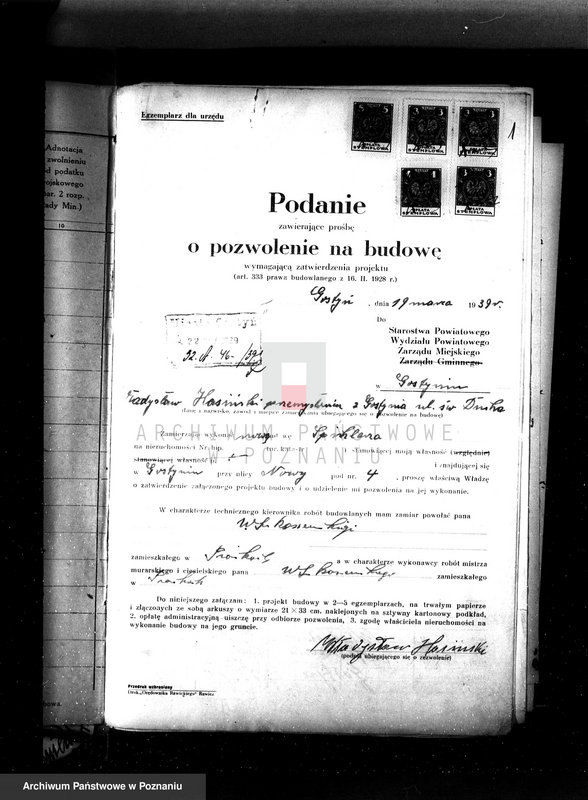 Adnotacja
zwolnieniu
d podatku
ojskowego
ar. 2 rozp.
ady Min.)
10
Egzemplarz dla urzędu
1
5 5
3 3
3 3
1 1
3 3
OPŁATA
STEMPLOWA
Podanie
zawierające prośbę
o pozwolenie na budowę
wymagającą zatwierdzenia projektu
(art. 333 prawa budowlanego z 16. II. 1928 r.)
Gostyń, dnia 19 marca 1939 r.
Do
Starostwa Powiatowego
Wydziału Powiatowego
Zarządu Miejskiego
Zarządu Gminnego
w Gostyniu
ładysław Hasiński przemysłowiec z Gostynia ul. św. Ducha
(imię i nazwisko, zawód i miejsce zamieszkania ubiegającego się o pozwolenie na budowę)
ARCHIWUM PAŃSTWOWE
W POZNANIU
Zamierzając wykonać
na nieruchomości Nr. hip. stanowiącej moją własność (względnie)
stanowiącej własność p. i znajdującej się
w Gostyniu przy ulicy Nowy pod nr. 4, proszę właściwą Władzę
o zatwierdzenie załączonego projektu budowy i o udzielenie mi pozwolenia na jej wykonanie.
W charakterze technicznego kierownika robót budowlanych mam zamiar powołać pana
zamieszkałego w a w charakterze wykonawcy robót mistrza
murarskiego i ciesielskiego pana zamieszkałego
w
Do niniejszego załączam: 1. projekt budowy w 2—5 egzemplarzach, na trwałym papierze
i złączonych ze sobą arkuszy o wymiarze 21 × 33 cm. naklejonych na sztywny kartonowy podkład,
2. opłatę administracyjną uiszczę przy odbiorze pozwolenia, 3. zgodę właściciela nieruchomości na
wykonanie budowy na jego gruncie.
Władysław Hasiński
(podpis ubiegającego się o zezwolenie)
Przedruk wzbroniony
Druk. „Orędownika Rawickiego" Rawicz
Archiwum Państwowe w Poznaniu